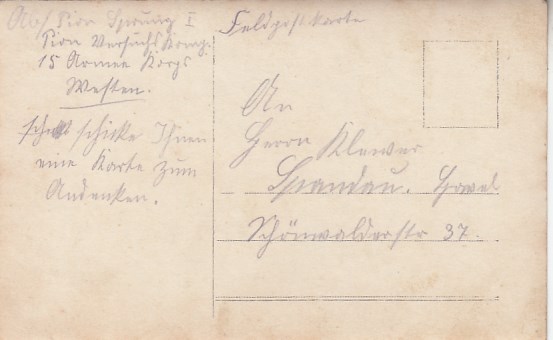 Abs Pion Sprung I
Pion Versuchs Komp.
15 Armee Korps
Westen.
schicke Ihnen
eine Karte zum
Andenken.
Feldpostkarte
An
Herrn Klewer
Spandau. Havel
Schönwalderstr 37.